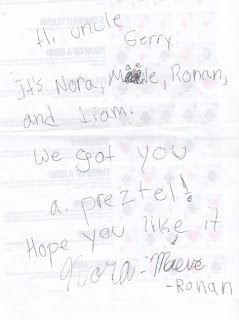 Hi uncle
Gerry
It's Nora, Maeve, Ronan,
and Liam.
We got you
a preztel!
Hope you like it
Nora - Maeve
- Ronan